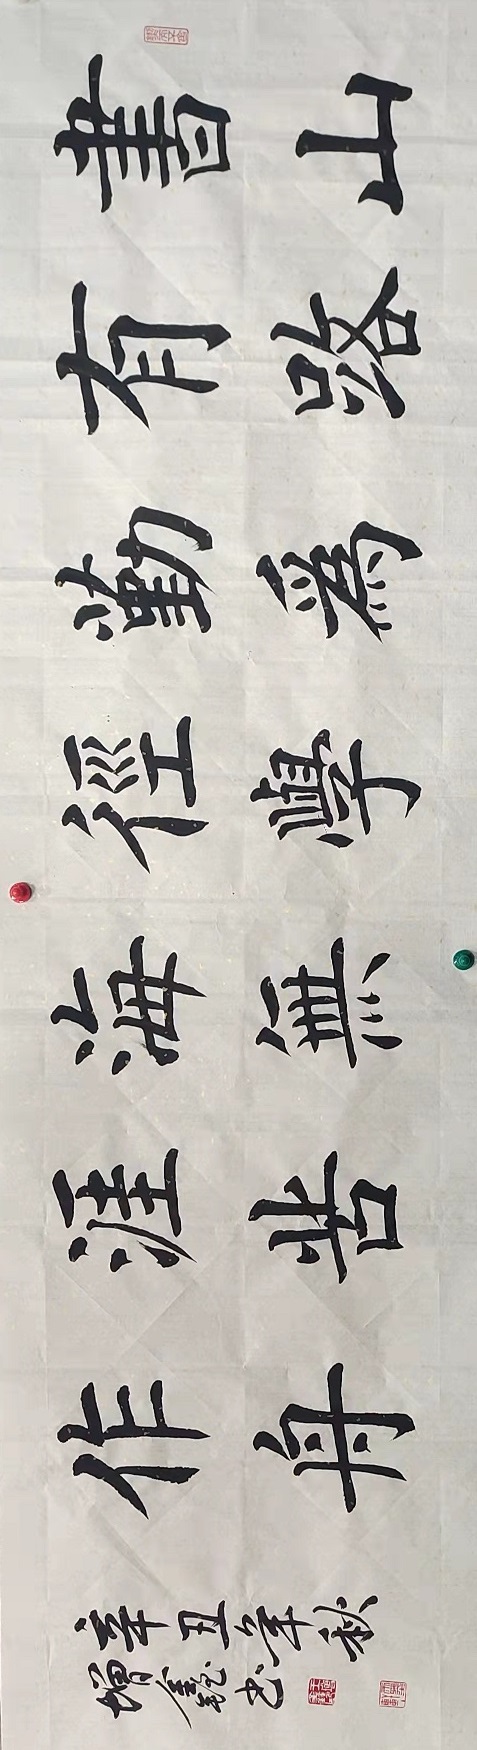 書山
有路
勤爲
徑學
海無
涯苦
作舟
辛丑年秋
书